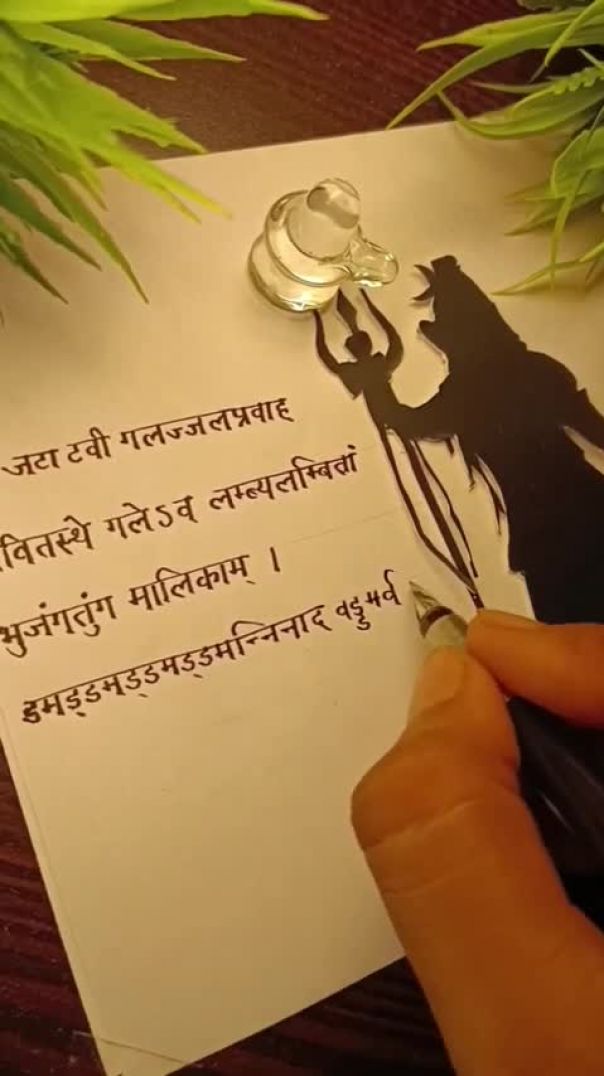 जटा टवी गलज्जलप्रवाह
वितस्थे गलेऽव लम्ब्यलम्बितां
भुजंगतुंग मालिकाम् ।
डमड्डमड्डमड्डमन्निनाद वड्डमर्व